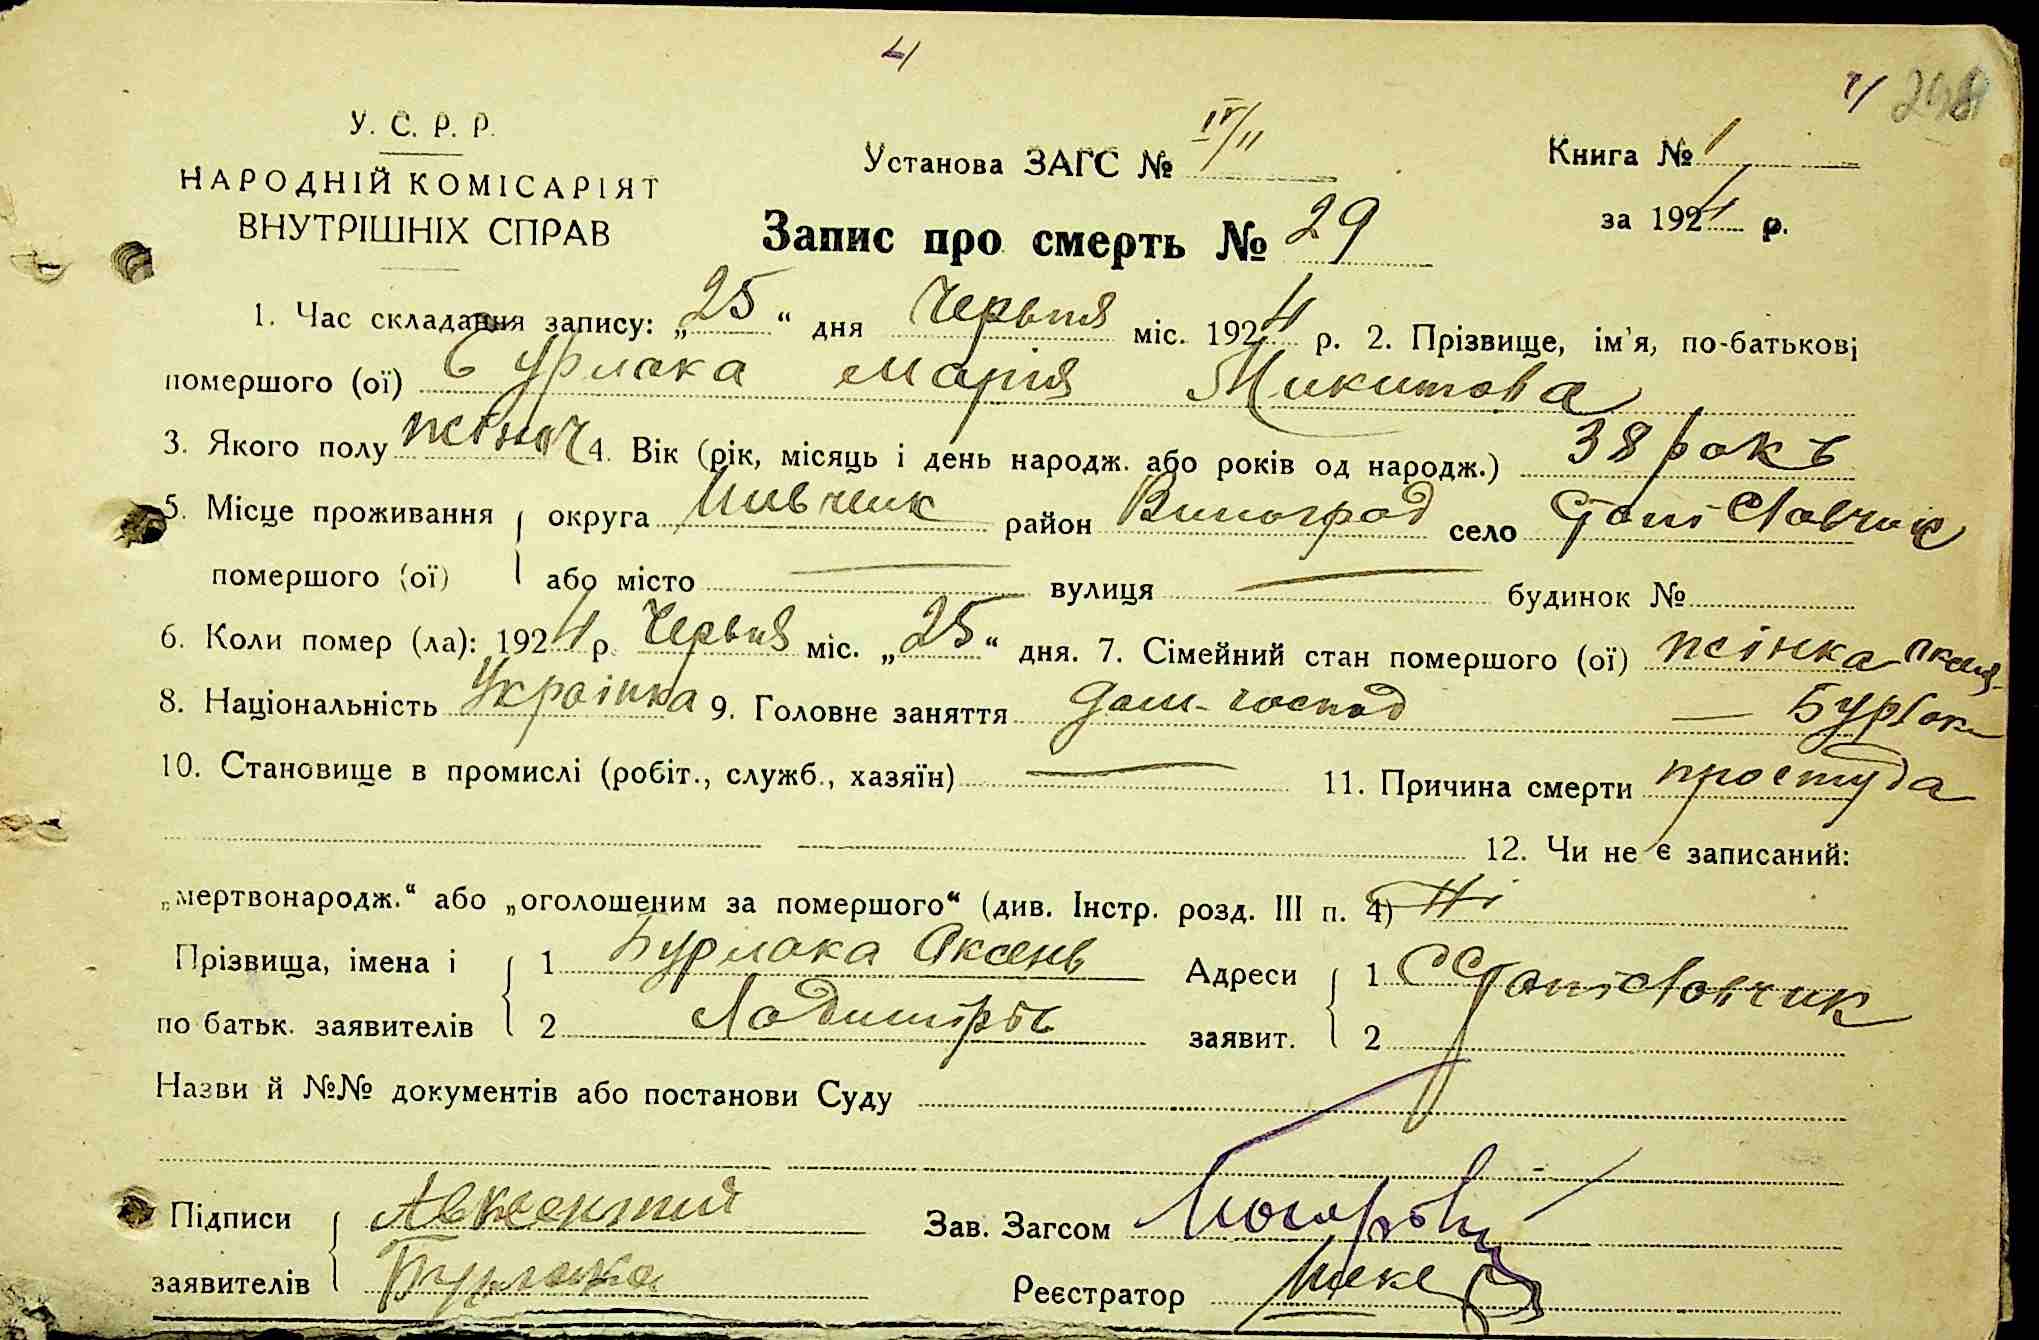 4
248
У. С. Р. Р.
НАРОДНІЙ КОМІСАРІЯТ
ВНУТРІШНІХ СПРАВ
Установа ЗАГС № IV/II
Книга № 1
за 1924 р.
Запис про смерть № 29
1. Час складання запису: „25“ дня Червня міс. 1924 р. 2. Прізвище, ім'я, по-батькові
помершого (ої) Бурлака Марія Микитова
3. Якого полу жіноч 4. Вік (рік, місяць і день народж. або років од народж.) 38 рокъ
5. Місце проживання округа район Виноград село Станіславчик
помершого (ої) або місто — вулиця — будинок №
6. Коли помер (ла): 1924 р. Червня міс. „25“ дня. 7. Сімейний стан помершого (ої) жінка
8. Національність Украінка 9. Головне заняття дом-господ — Бурлак
10. Становище в промислі (робіт., служб., хазяїн) — 11. Причина смерти простуда
12. Чи не є записаний:
„мертвонародж.“ або „оголошеним за помершого“ (див. Інстр. розд. III п. 4) Ні
Прізвища, імена і 1 Бурлака Аксень Адреси 1 С Станіславчик
по батьк. заявителів 2 заявит. 2
Назви й №№ документів або постанови Суду
Підписи Авксентий
заявителів Бурлака
Зав. Загсом
Реєстратор